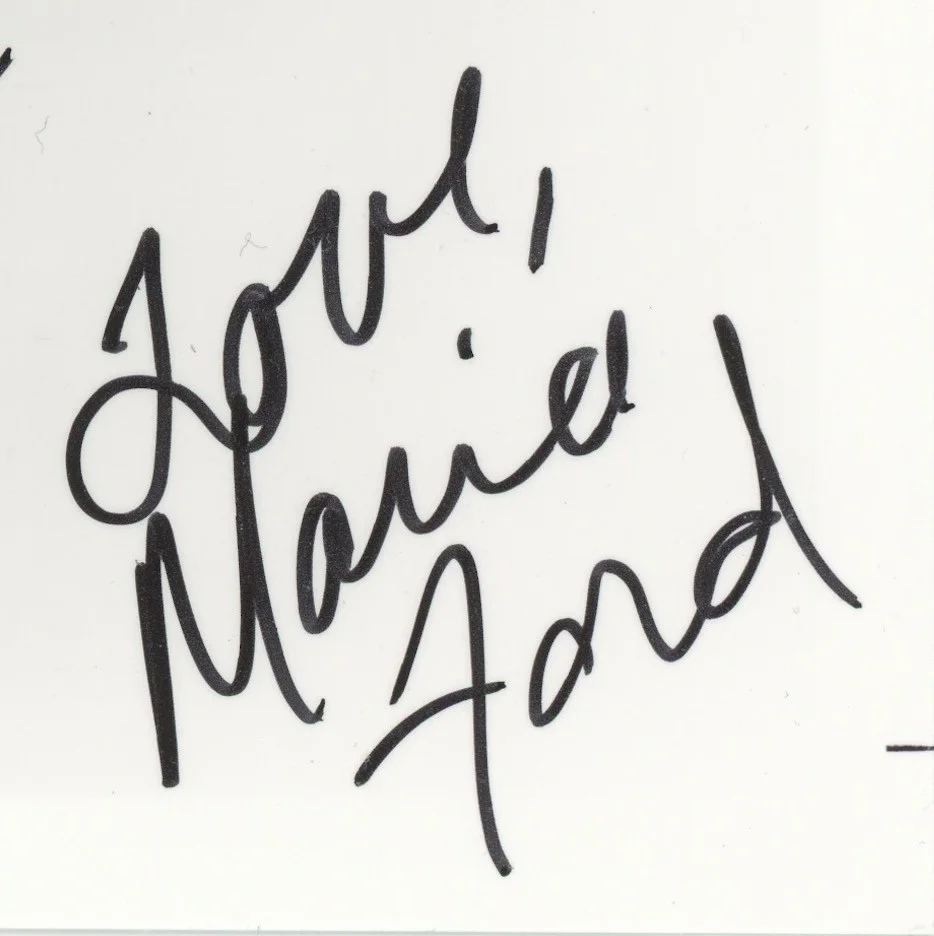 Love,
Maria
Ford